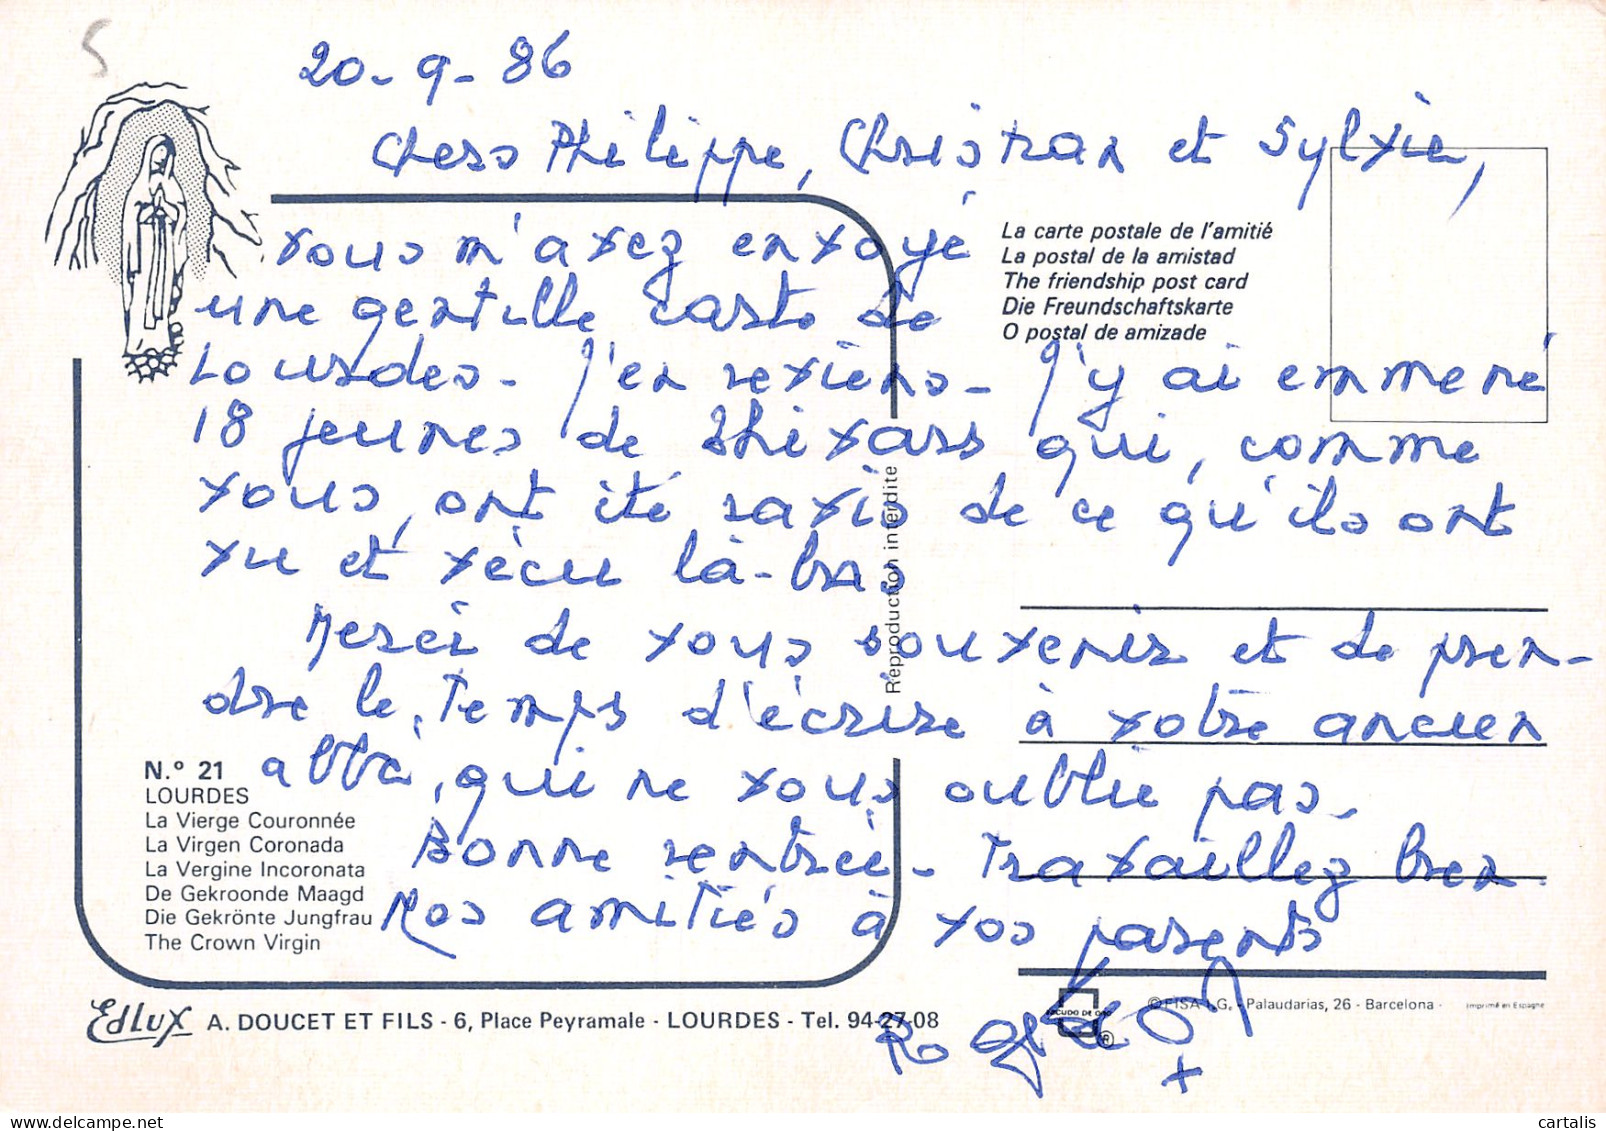 20-9-86
Chers Philippe, Christian et Sylvie,
vous m'avez envoyé
une gentille carte de
Lourdes - J'en reviens - J'y ai emmené
18 jeunes de Thivars qui, comme
vous, ont été ravis de ce qu'ils ont
vu et vécu là-bas
Merci de vous souvenir et de pren-
dre le temps d'écrire à votre ancien
abbé, qui ne vous oublie pas.
Bonne rentrée - Travaillez bien.
Mes amitiés à vos parents
La carte postale de l'amitié
La postal de la amistad
The friendship post card
Die Freundschaftskarte
O postal de amizade
Reproduction interdite
N.º 21
LOURDES
La Vierge Couronnée
La Virgen Coronada
La Vergine Incoronata
De Gekroonde Maagd
Die Gekrönte Jungfrau
The Crown Virgin
EdLux A. DOUCET ET FILS - 6, Place Peyramale - LOURDES - Tel. 94-27-08
ESCUDO DE ORO
®
© FISA I.G. - Palaudarias, 26 - Barcelona - Imprimé en Espagne
cartalis
www.delcampe.net